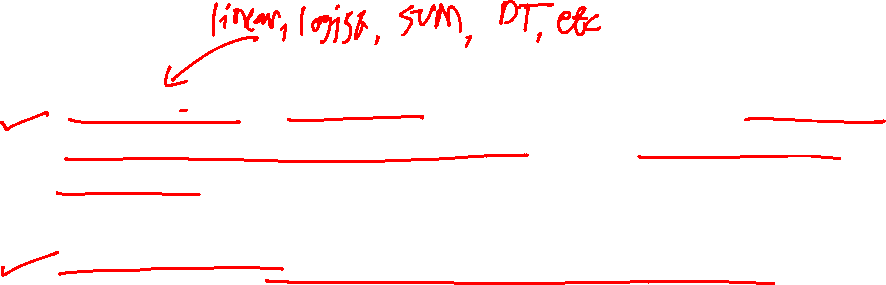 linear, logist, SVM, DT, etc